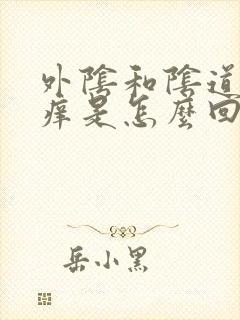 外陰和陰道
痒是怎麼回
岳小黑